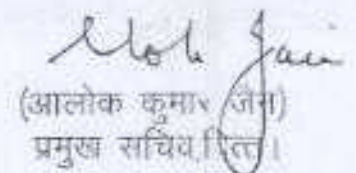 Alok Jain
(आलोक कुमार जैन)
प्रमुख सचिव, वित्त।